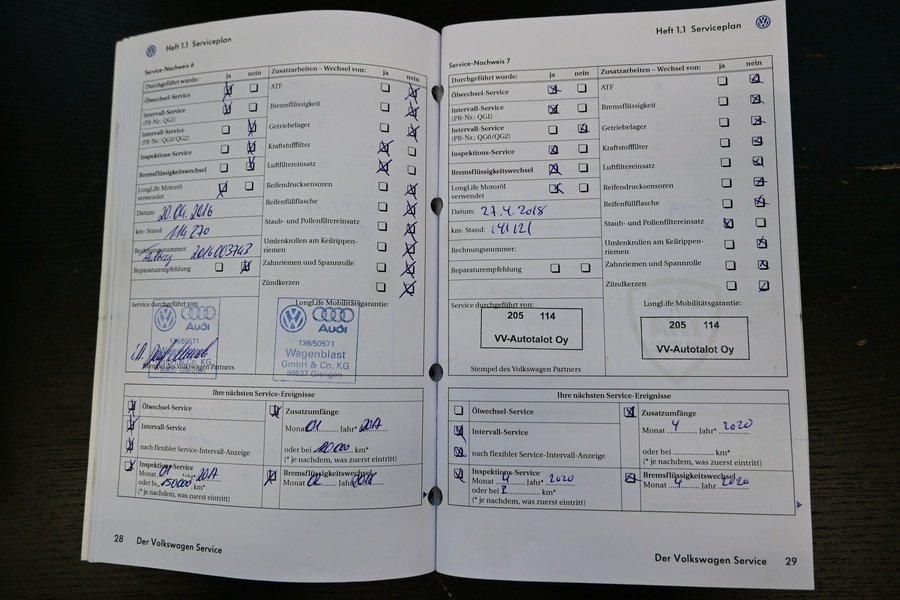 Heft 1.1 Serviceplan
Service-Nachweis 6
Durchgeführt wurde: ja nein
Ölwechsel-Service
Intervall-Service
(PR-Nr.: QG1)
Intervall-Service
(PR-Nr.: QG0/QG2)
Inspektions-Service
Bremsflüssigkeitswechsel
LongLife Motoröl
verwendet
Datum: 20.04.2016
km-Stand: 114 270
Rechnungsnummer:
Auftrag 2016003743
Reparaturempfehlung
Zusatzarbeiten – Wechsel von: ja nein
ATF
Bremsflüssigkeit
Getriebelager
Kraftstofffilter
Luftfiltereinsatz
Reifendrucksensoren
Reifenfüllflasche
Staub- und Pollenfiltereinsatz
Umlenkrollen am Keilrippen-
riemen
Zahnriemen und Spannrolle
Zündkerzen
Service durchgeführt von:
Audi
136/50571
& Co. KG
Stempel des Volkswagen Partners
LongLife Mobilitätsgarantie:
Audi
136/50571
Wagenblast
GmbH & Co. KG
89537 Giengen
Ihre nächsten Service-Ereignisse
Ölwechsel-Service
Intervall-Service
nach flexibler Service-Intervall-Anzeige
Inspektions-Service
Monat 04 Jahr* 2017
oder bei 150000 km*
(* je nachdem, was zuerst eintritt)
Zusatzumfänge
Monat 01 Jahr* 2017
oder bei km*
(* je nachdem, was zuerst eintritt)
Bremsflüssigkeitswechsel
Monat 02 Jahr 2018
28 Der Volkswagen Service
Heft 1.1 Serviceplan
Service-Nachweis 7
Durchgeführt wurde: ja nein
Ölwechsel-Service
Intervall-Service
(PR-Nr.: QG1)
Intervall-Service
(PR-Nr.: QG0/QG2)
Inspektions-Service
Bremsflüssigkeitswechsel
LongLife Motoröl
verwendet
Datum: 27.4.2018
km-Stand: 141121
Rechnungsnummer:
Reparaturempfehlung
Zusatzarbeiten – Wechsel von: ja nein
ATF
Bremsflüssigkeit
Getriebelager
Kraftstofffilter
Luftfiltereinsatz
Reifendrucksensoren
Reifenfüllflasche
Staub- und Pollenfiltereinsatz
Umlenkrollen am Keilrippen-
riemen
Zahnriemen und Spannrolle
Zündkerzen
Service durchgeführt von:
205 114
VV-Autotalot Oy
Stempel des Volkswagen Partners
LongLife Mobilitätsgarantie:
205 114
VV-Autotalot Oy
Ihre nächsten Service-Ereignisse
Ölwechsel-Service
Intervall-Service
nach flexibler Service-Intervall-Anzeige
Inspektions-Service
Monat 4 Jahr* 2020
oder bei km*
(* je nachdem, was zuerst eintritt)
Zusatzumfänge
Monat 4 Jahr* 2020
oder bei km*
(* je nachdem, was zuerst eintritt)
Bremsflüssigkeitswechsel
Monat 4 Jahr 2020
Der Volkswagen Service 29